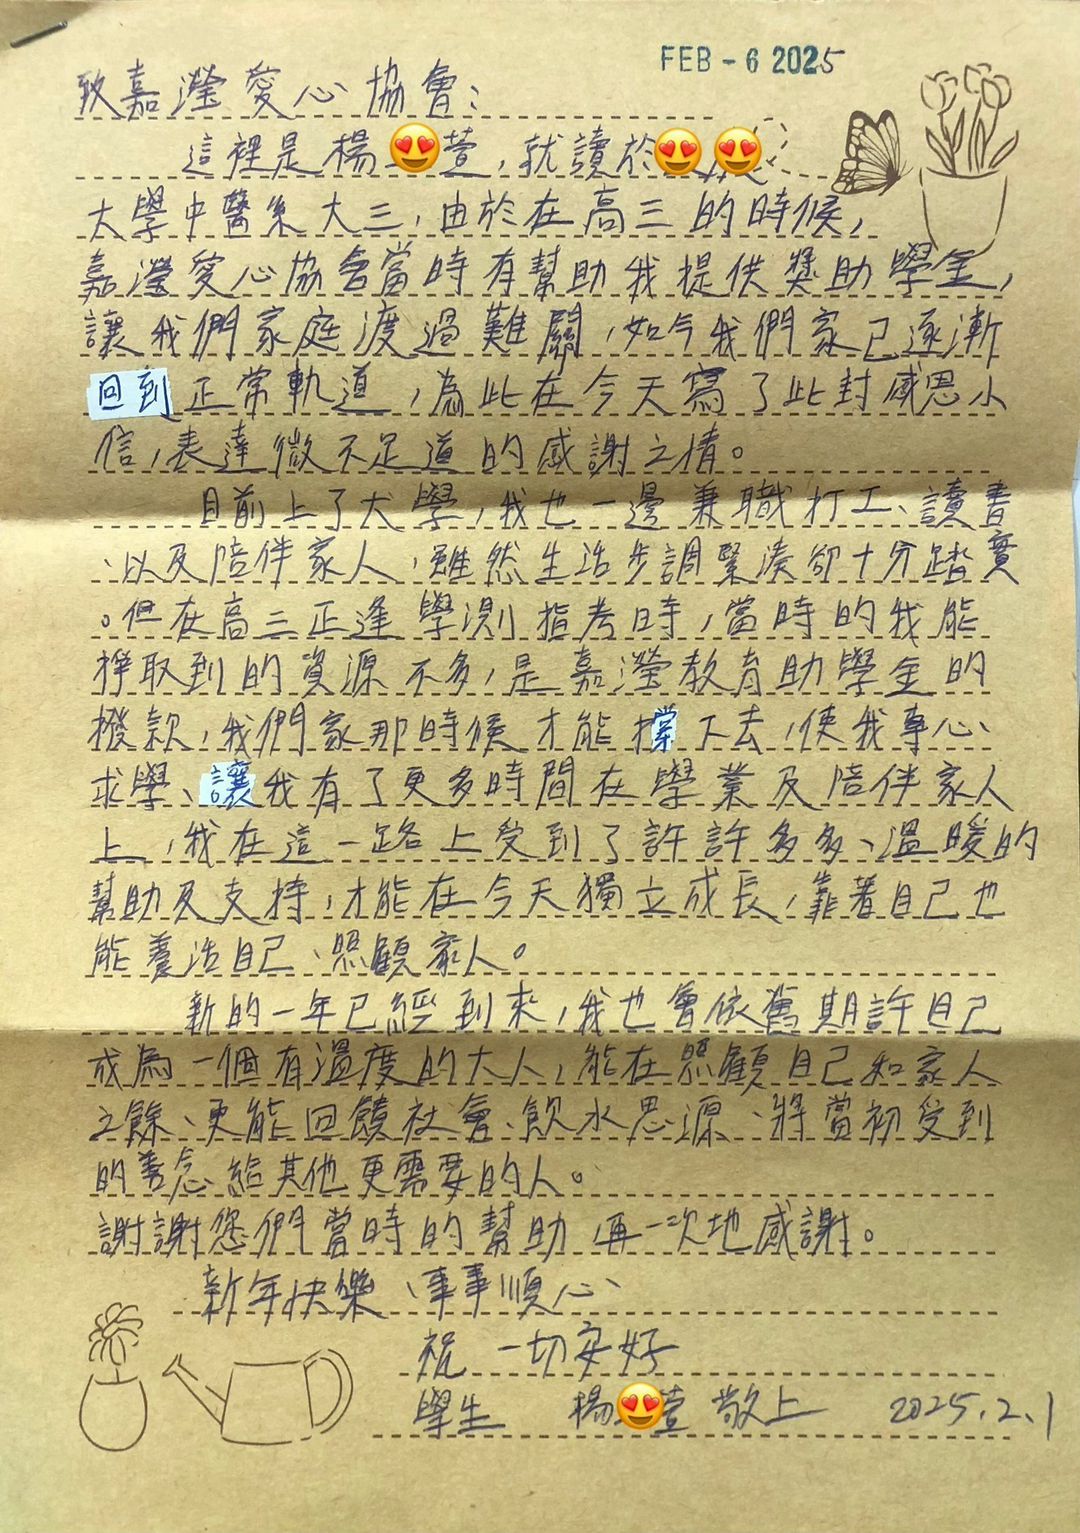 FEB - 6 2025
致嘉瀅愛心協會：
這裡是楊😍萱，就讀於😍😍
大學中醫系大三，由於在高三的時候，
嘉瀅愛心協會當時有幫助我提供獎助學金，
讓我們家庭渡過難關，如今我們家已逐漸
回到正常軌道，為此在今天寫了此封感恩小
信，表達微不足道的感謝之情。
目前上了大學，我也一邊兼職打工、讀書
、以及陪伴家人，雖然生活步調緊湊卻十分踏實
。但在高三正逢學測指考時，當時的我能
掙取到的資源不多，是嘉瀅教育助學金的
撥款，我們家那時候才能撐下去，使我專心
求學、讓我有了更多時間在學業及陪伴家人
上，我在這一路上受到了許許多多、溫暖的
幫助及支持，才能在今天獨立成長，靠著自己也
能養活自己、照顧家人。
新的一年已經到來，我也會依舊期許自己
成為一個有溫度的大人，能在照顧自己和家人
之餘、更能回饋社會、飲水思源、將當初受到
的善念給其他更需要的人。
謝謝您們當時的幫助，再一次地感謝。
新年快樂、事事順心、
祝 一切安好
學生 楊😍萱 敬上 2025.2.1